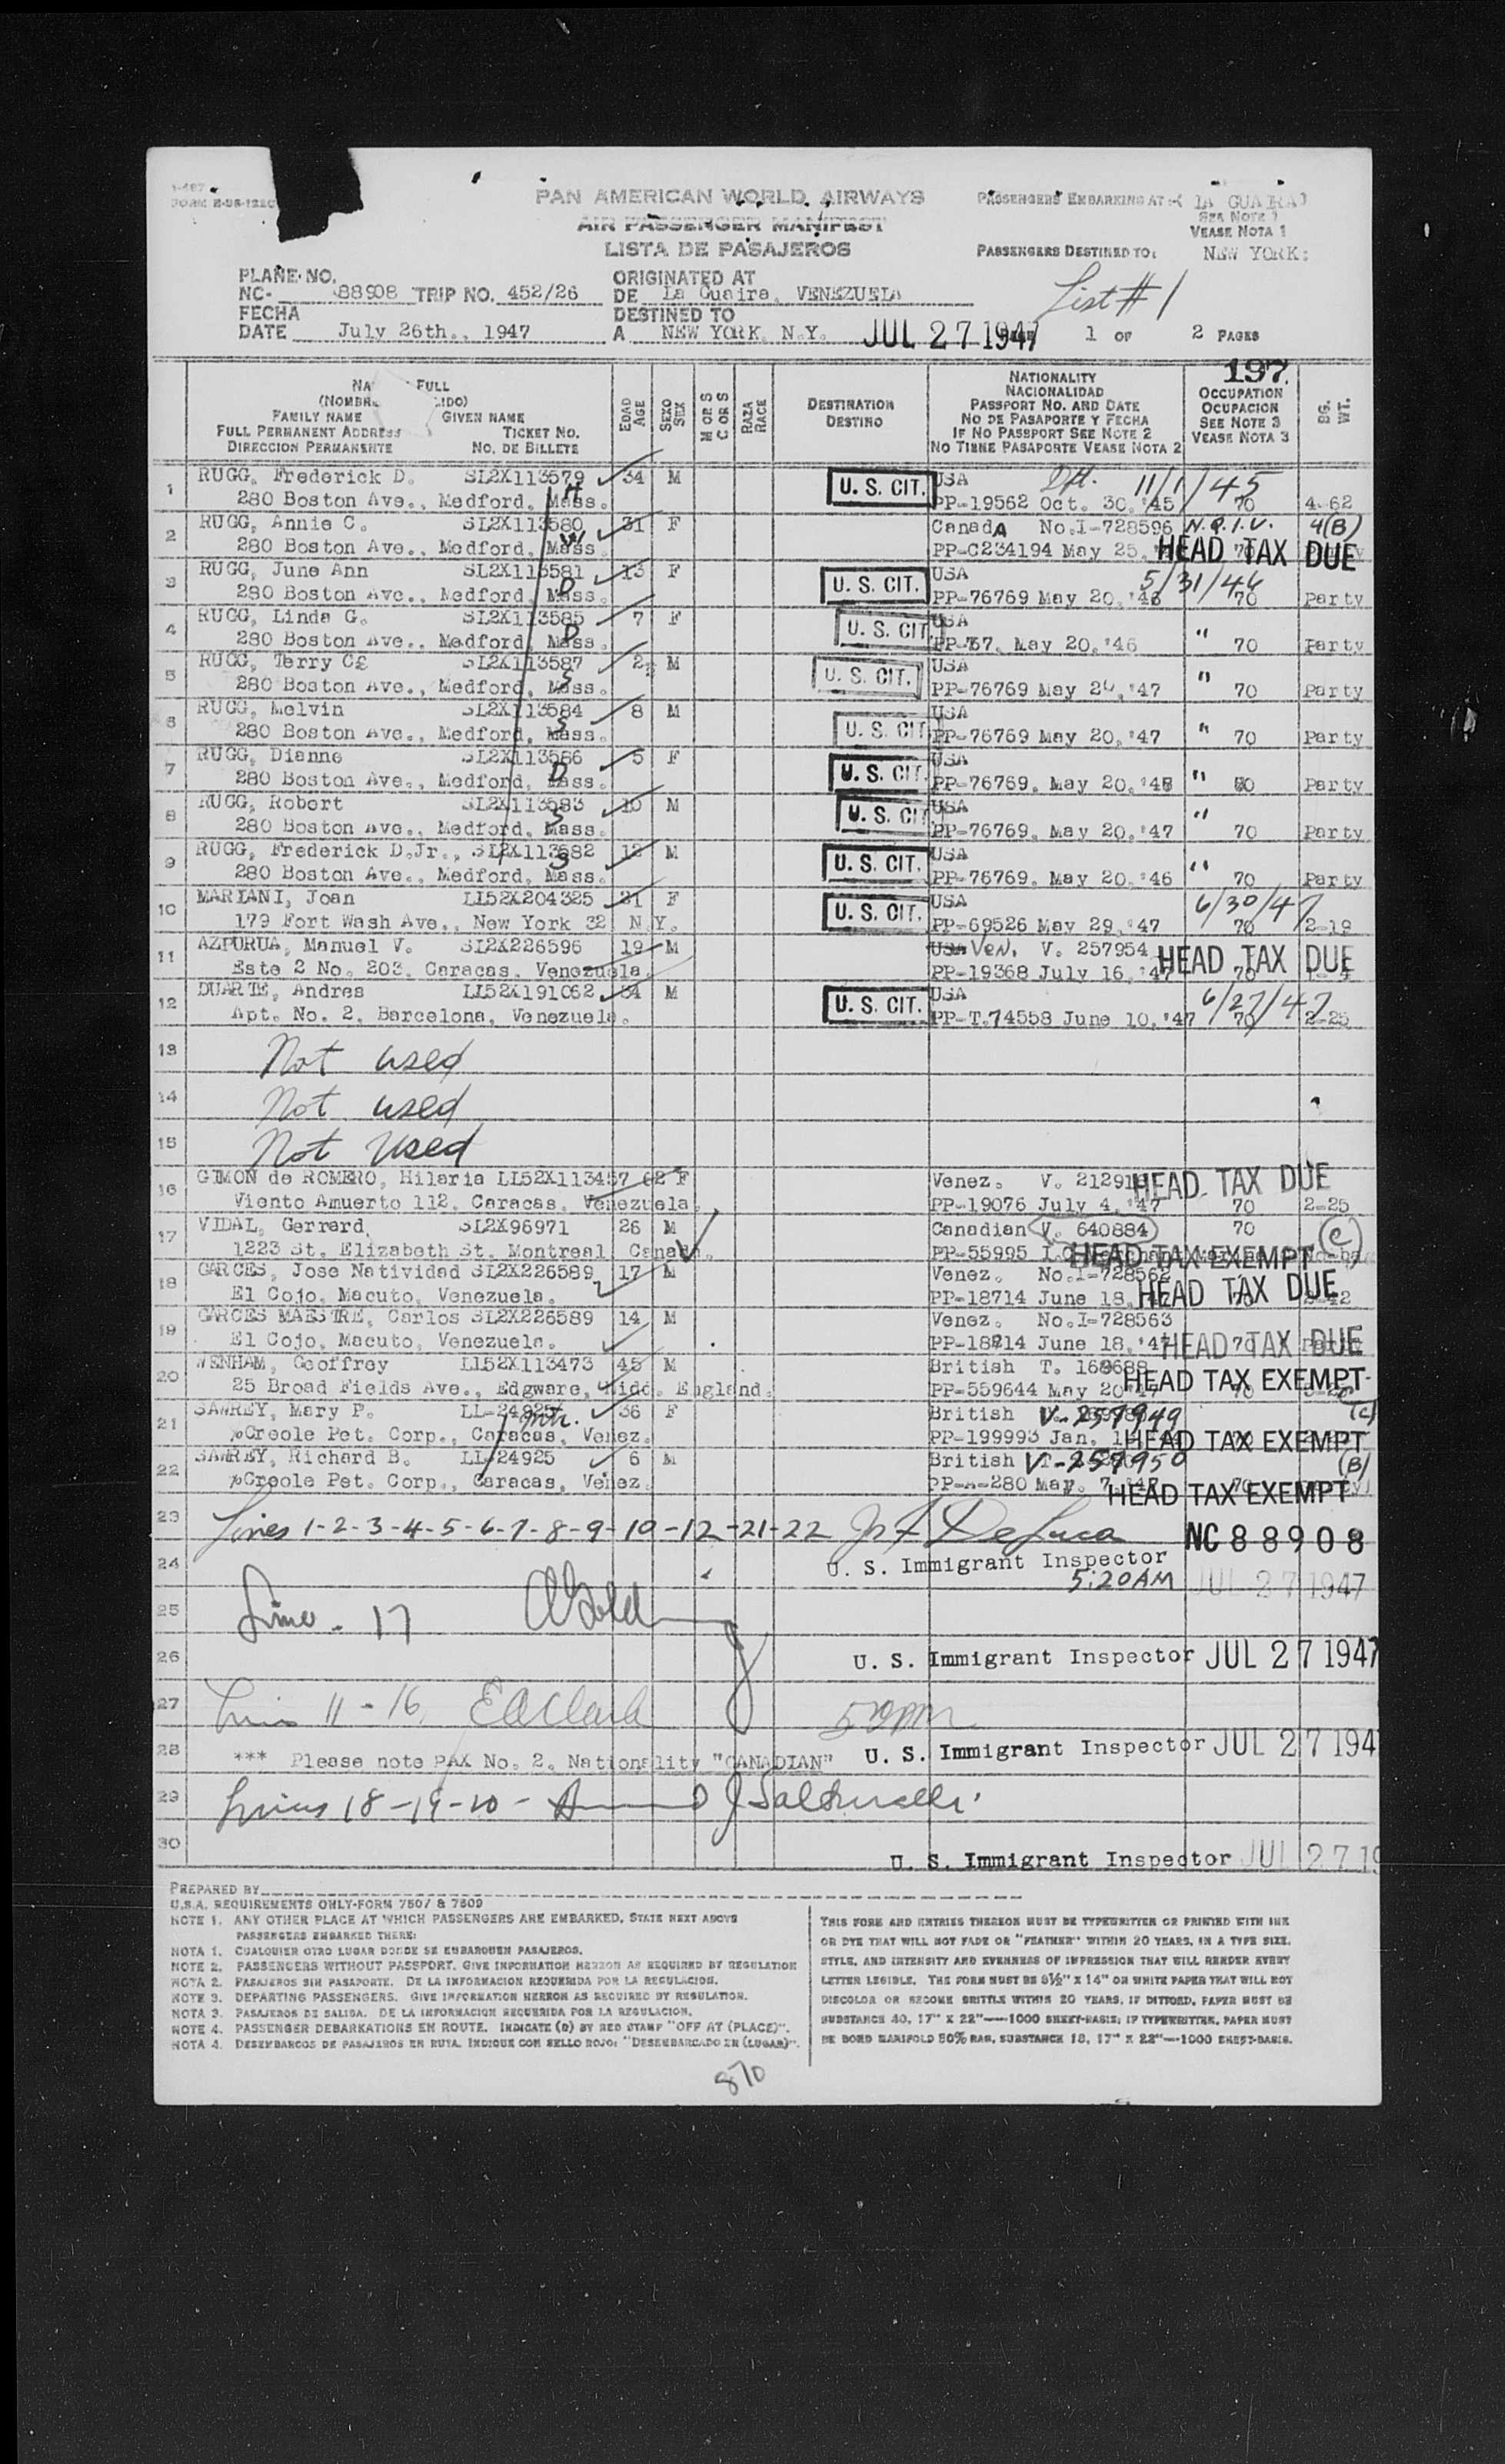 I-487
FORM E-98-122C
PAN AMERICAN WORLD AIRWAYS
AIR PASSENGER MANIFEST
LISTA DE PASAJEROS
PASSENGERS EMBARKING AT: LA GUAIRA
SEE NOTE 1
VEASE NOTA 1
PASSENGERS DESTINED TO: NEW YORK:
List # 1
PLANE NO.
NC- 88908 TRIP NO. 452/26
ORIGINATED AT
DE La Guaira, VENEZUELA
FECHA
DATE July 26th., 1947
DESTINED TO
A NEW YORK, N.Y. JUL 27 1947
1 OF 2 PAGES
197
FULL
FAMILY NAME GIVEN NAME
FULL PERMANENT ADDRESS TICKET NO.
DIRECCION PERMANENTE NO. DE BILLETE
EDAD AGE
SEXO SEX
M OR S C OR S
RAZA RACE
DESTINATION DESTINO
NATIONALITY
NACIONALIDAD
PASSPORT NO. AND DATE
NO DE PASAPORTE Y FECHA
IF NO PASSPORT SEE NOTE 2
NO TIENE PASAPORTE VEASE NOTA 2
OCCUPATION
OCUPACION
SEE NOTE 3
VEASE NOTA 3
BG. WT.
1 RUGG, Frederick D. SL2X113579 34 M U. S. CIT. USA 11/1/45
280 Boston Ave., Medford, Mass. H PP-19562 Oct. 30, '45 70 4-62
2 RUGG, Annie C. SL2X113580 31 F CanadA No.I-728596 N.Q.I.V. 4(B)
280 Boston Ave., Medford, Mass. W PP-C234194 May 25, HEAD TAX DUE
3 RUGG, June Ann SL2X113581 13 F U. S. CIT. USA 5/31/46
280 Boston Ave., Medford, Mass. D PP-76769 May 20, '46 70 Party
4 RUGG, Linda G. SL2X113585 7 F U. S. CIT. USA
280 Boston Ave., Medford, Mass. D May 20, '46 " 70 Party
5 RUGG, Terry SL2X113587 2 M U. S. CIT. USA
280 Boston Ave., Medford, Mass. S PP-76769 May 20, '47 " 70 Party
6 RUGG, Melvin SL2X113584 8 M U. S. CIT. USA
280 Boston Ave., Medford, Mass. S PP-76769 May 20, '47 " 70 Party
7 RUGG, Dianne SL2X113586 5 F U. S. CIT. USA
280 Boston Ave., Medford, Mass. D PP-76769, May 20, " Party
8 RUGG, Robert SL2X113583 10 M U. S. CIT. USA
280 Boston Ave., Medford, Mass. S PP-76769, May 20, '47 " 70 Party
9 RUGG, Frederick D.Jr., SL2X113582 12 M U. S. CIT. USA
280 Boston Ave., Medford, Mass. S PP-76769, May 20, '46 " 70 Party
10 MARIANI, Joan LL52X204325 F U. S. CIT. USA 6/30/47
179 Fort Wash Ave., New York 32 N.Y. PP-69526 May 29, '47 70 2-19
11 AZPURUA, Manuel V. SL2X226596 19 M USA Ven. V. 257954 HEAD TAX DUE
Este 2 No. 203, Caracas, Venezuela. PP-19368 July 16, '47 70
12 DUARTE, Andres LL52X191062 34 M U. S. CIT. USA 6/27/47
Apt. No. 2, Barcelona, Venezuela. PP-T.74558 June 10, '47 70 2-25
13 Not used
14 Not used
15 Not used
16 GIMON de ROMERO, Hilaria LL52X113457 62 F Venez. HEAD TAX DUE
Viento Amuerto 112, Caracas, Venezuela. PP-19076 July 4, '47 70 2-25
17 VIDAL, Gerrard SL2X96971 26 M Canadian V. 640884 70 (C)
1223 St. Elizabeth St. Montreal Canada. PP-55995 HEAD TAX EXEMPT
18 GARCES, Jose Natividad SL2X226589 17 M Venez. No.I-728562
El Cojo, Macuto, Venezuela. PP-18714 June 18, HEAD TAX DUE
19 GARCES MAESTRE, Carlos SL2X226589 14 M Venez. No.I-728563
El Cojo, Macuto, Venezuela. PP-18814 June 18, '47 HEAD TAX DUE
20 WENHAM, Geoffrey LL52X113473 45 M British
25 Broad Fields Ave., Edgware, Midd. England. PP-559644 May 20 HEAD TAX EXEMPT
21 SAWREY, Mary P. LL-24925 36 F British V-257949 (C)
℅Creole Pet. Corp., Caracas, Venez. PP-199993 Jan. HEAD TAX EXEMPT
22 SAWREY, Richard B. LL-24925 6 M British V-257950 (B)
℅Creole Pet. Corp., Caracas, Venez. PP-A-280 May. 7, '47 HEAD TAX EXEMPT
23 Lines 1-2-3-4-5-6-7-8-9-10-12-21-22 DeLuca NC 88908
24 U. S. Immigrant Inspector
5:20AM JUL 27 1947
25 Line - 17
26 U. S. Immigrant Inspector JUL 27 1947
27 Lines 11-16, EAClark
28 *** Please note PAX No. 2. Nationality "CANADIAN" U. S. Immigrant Inspector JUL 27 194
29 Lines 18-19-20 -
30 U. S. Immigrant Inspector JUL 27 19
PREPARED BY
U.S.A. REQUIREMENTS ONLY-FORM 7507 & 7509
NOTE 1. ANY OTHER PLACE AT WHICH PASSENGERS ARE EMBARKED, STATE NEXT ABOVE
PASSENGERS EMBARKED THERE:
NOTA 1. CUALQUIER OTRO LUGAR DONDE SE EMBARQUEN PASAJEROS.
NOTE 2. PASSENGERS WITHOUT PASSPORT. GIVE INFORMATION HEREON AS REQUIRED BY REGULATION
NOTA 2. PASAJEROS SIN PASAPORTE. DE LA INFORMACION REQUERIDA POR LA REGULACION.
NOTE 3. DEPARTING PASSENGERS. GIVE INFORMATION HEREON AS REQUIRED BY REGULATION.
NOTA 3. PASAJEROS DE SALIDA. DE LA INFORMACION REQUERIDA POR LA REGULACION.
NOTE 4. PASSENGER DEBARKATIONS EN ROUTE. INDICATE (D) BY RED STAMP "OFF AT (PLACE)".
NOTA 4. DESEMBARCOS DE PASAJEROS EN RUTA. INDIQUE CON SELLO ROJO: "DESEMBARCADO EN (LUGAR)".
THIS FORM AND ENTRIES THEREON MUST BE TYPEWRITTEN OR PRINTED WITH INK
OR DYE THAT WILL NOT FADE OR "FEATHER" WITHIN 20 YEARS, IN A TYPE SIZE,
STYLE, AND INTENSITY AND EVENNESS OF IMPRESSION THAT WILL RENDER EVERY
LETTER LEGIBLE. THE FORM MUST BE 8½" X 14" ON WHITE PAPER THAT WILL NOT
DISCOLOR OR BECOME BRITTLE WITHIN 20 YEARS. IF DITTOED, PAPER MUST BE
SUBSTANCE 40, 17" X 22"—1000 SHEET-BASIS; IF TYPEWRITTEN, PAPER MUST
BE BOND MANIFOLD 50% RAG, SUBSTANCE 18, 17" X 22"—1000 SHEET-BASIS.
870